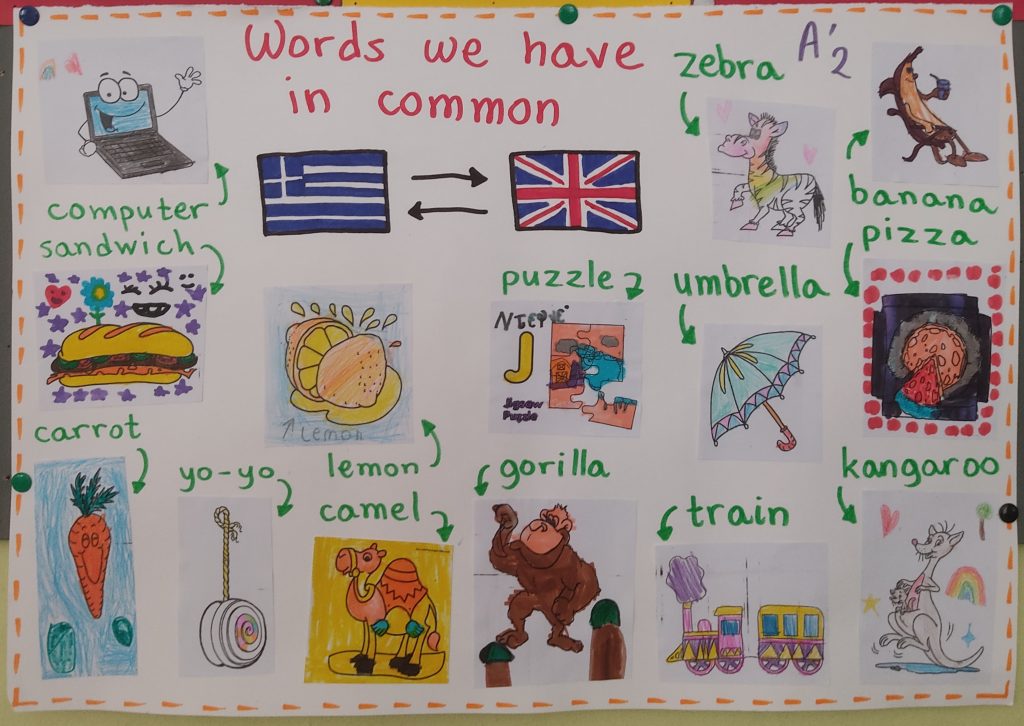 Words we have
in common
A'2
zebra
banana
computer
sandwich
pizza
puzzle
umbrella
J
Jigsaw
Puzzle
Lemon
carrot
yo-yo
lemon
camel
gorilla
train
kangaroo